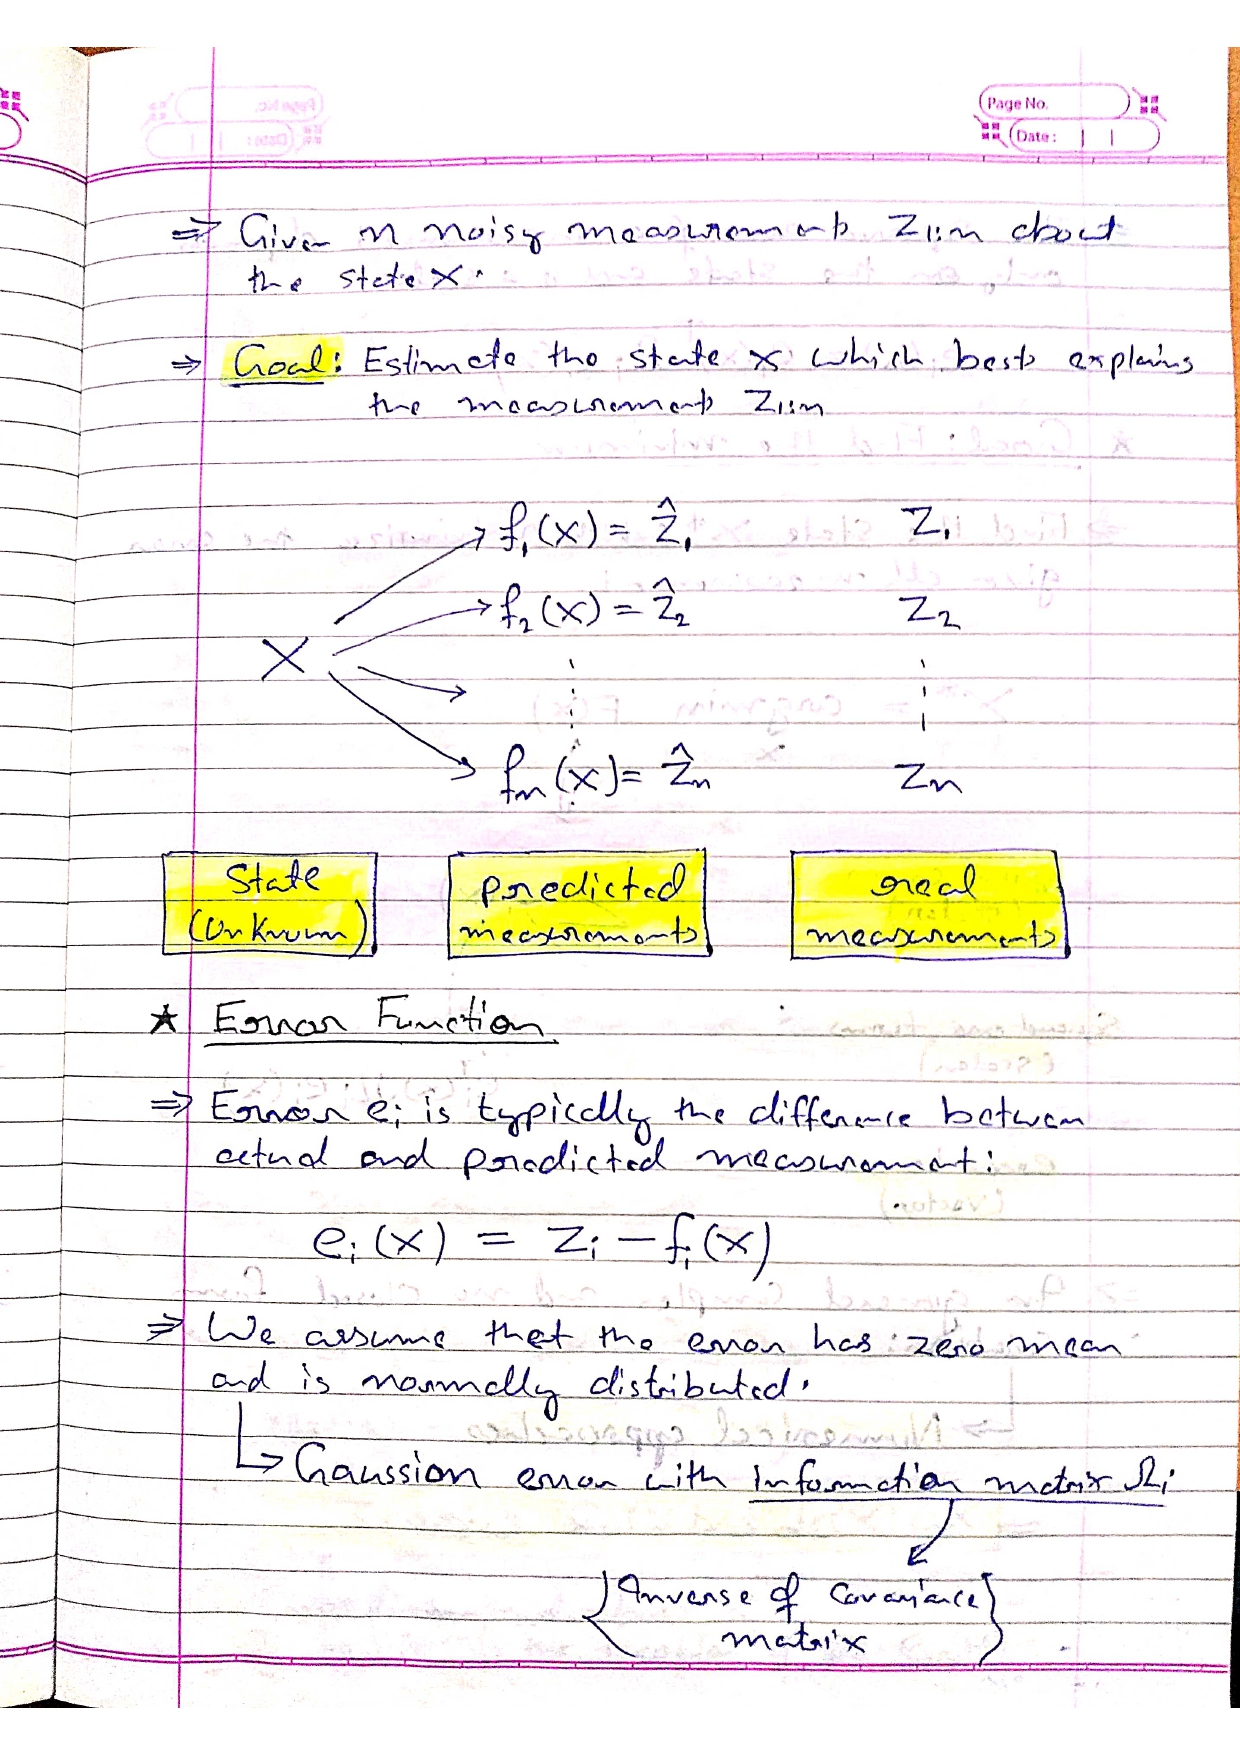 Page No.
Date :
⇒ Given n noisy measurements Z1:n about
the state X.
⇒ Goal: Estimate the state x which best explains
the measurements Z1:n
f₁(x) = Ẑ₁ Z₁
f₂(x) = Ẑ₂ Z₂
X
fn(x) = Ẑn Zn
State predicted real
(UnKnown) measurements measurements
★ Error Function
⇒ Error eᵢ is typically the difference between
actual and predicted measurement:
eᵢ(x) = Zᵢ − fᵢ(x)
⇒ We assume that the error has zero mean
and is normally distributed.
↳ Gaussian error with information matrix Ωᵢ
{Inverse of Covariance
matrix}